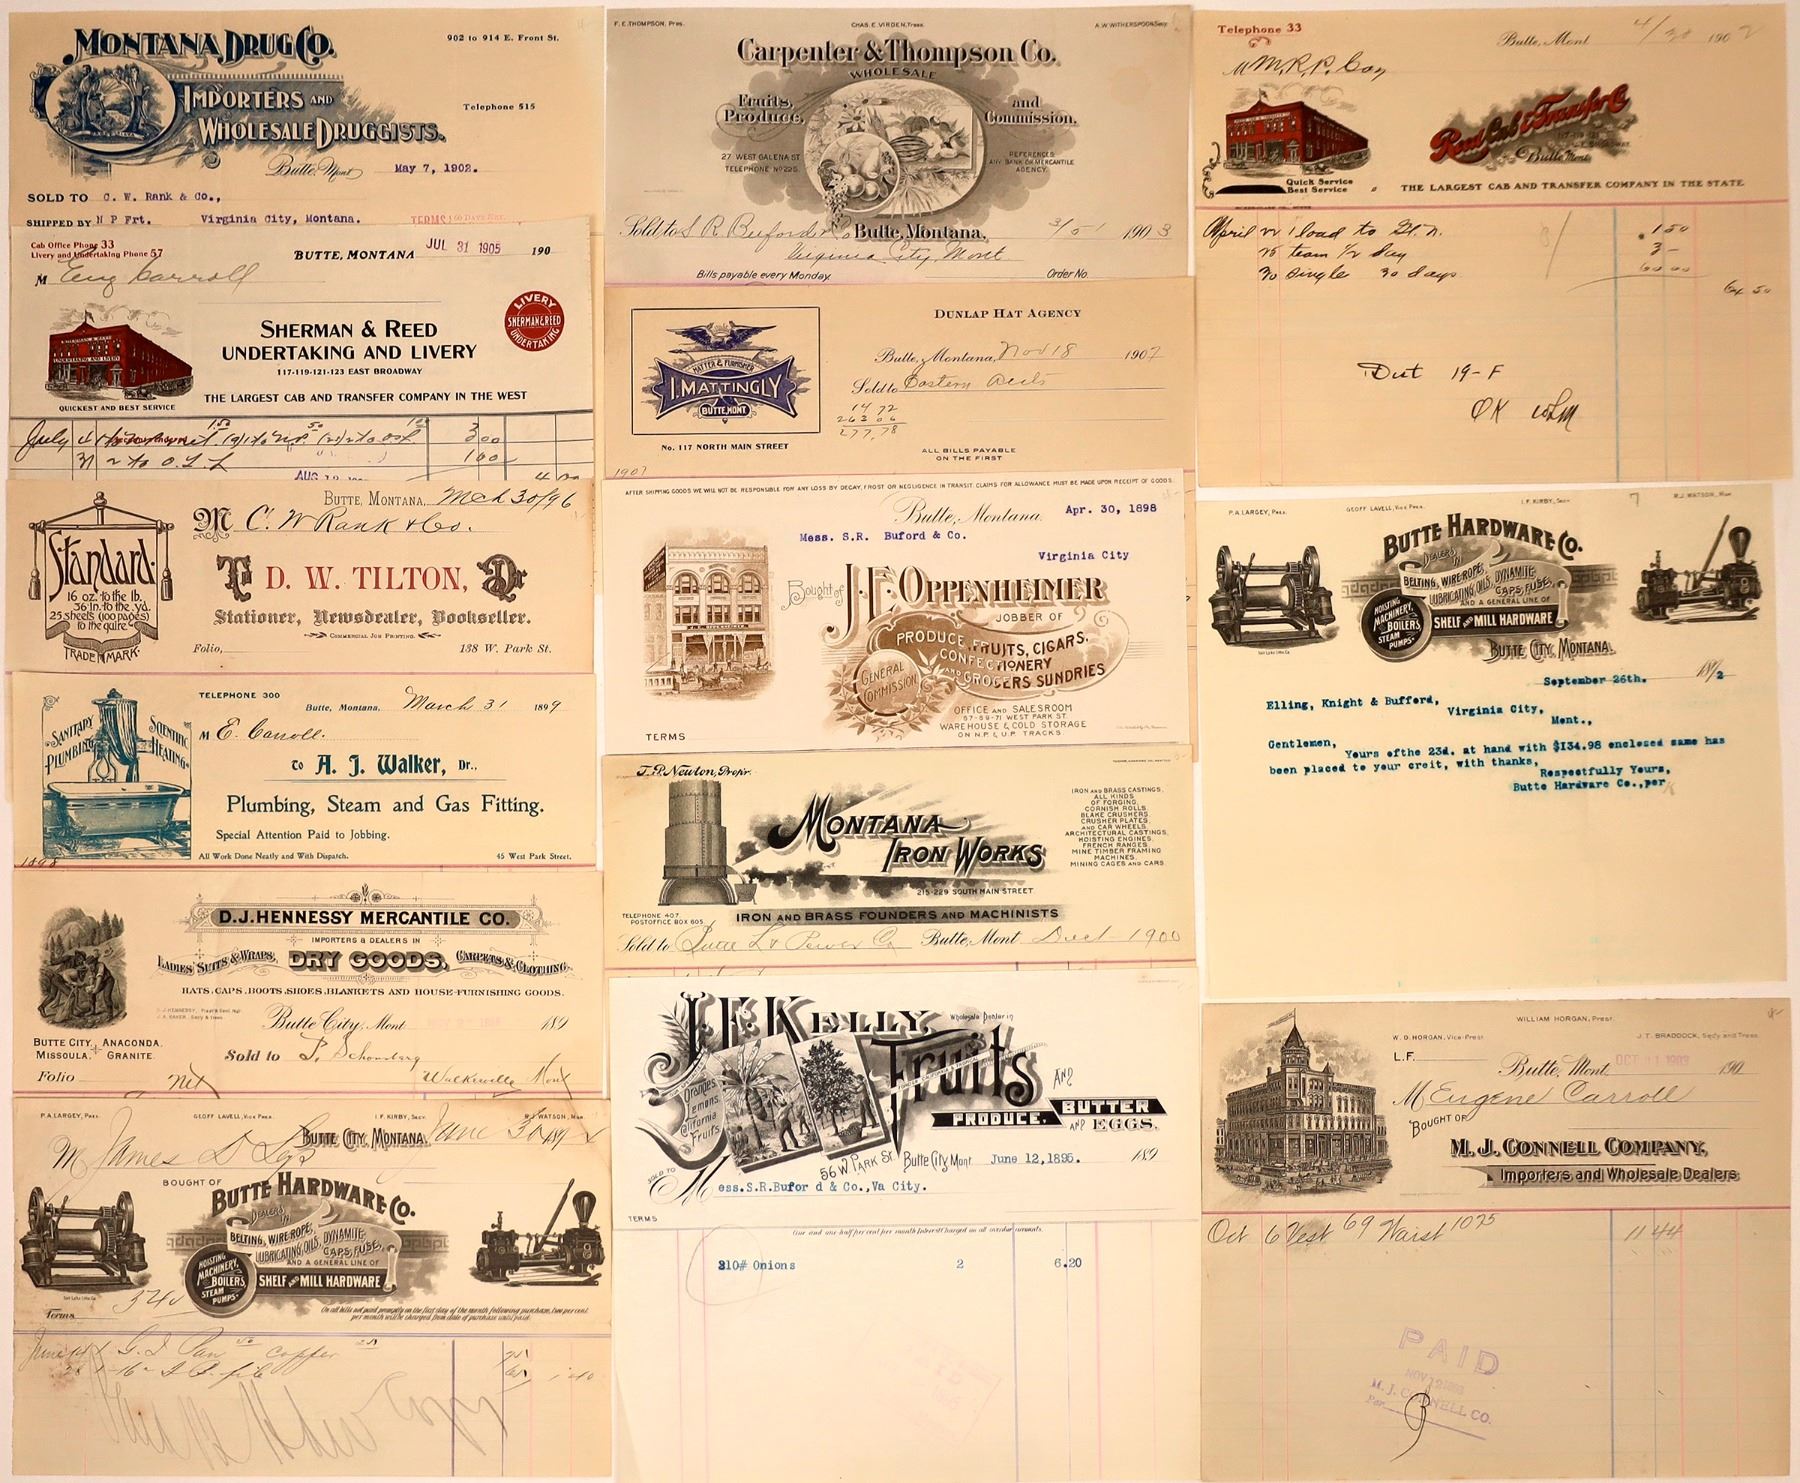 MONTANA DRUG CO.
902 to 914 E. Front St.
IMPORTERS AND
WHOLESALE DRUGGISTS.
Telephone 515
Butte, Mont May 7, 1902.
SOLD TO C. W. Rank & Co.,
SHIPPED BY N P Frt. Virginia City, Montana.
TERMS 60 DAYS NET.
Cab Office Phone 33
Livery and Undertaking Phone 57
BUTTE, MONTANA JUL 31 1905 190
M Eug Carroll
SHERMAN & REED
UNDERTAKING AND LIVERY
117-119-121-123 EAST BROADWAY
LIVERY
SHERMAN & REED
UNDERTAKING
QUICKEST AND BEST SERVICE
THE LARGEST CAB AND TRANSFER COMPANY IN THE WEST
July
BUTTE, MONTANA, Mch 30/96
M C. W Rank & Co.
Standard
16 oz. to the lb.
36 in. to the yd.
25 sheets (100 pages)
to the quire
TRADE MARK.
To D. W. TILTON, Dr
Stationer, Newsdealer, Bookseller.
COMMERCIAL JOB PRINTING.
Folio, 138 W. Park St.
TELEPHONE 300
Butte, Montana, March 31 1899
SANITARY PLUMBING
SCIENTIFIC HEATING
M E. Carroll.
To A. J. Walker, Dr.,
Plumbing, Steam and Gas Fitting.
Special Attention Paid to Jobbing.
All Work Done Neatly and With Dispatch. 45 West Park Street.
1898
D. J. HENNESSY MERCANTILE CO.
IMPORTERS & DEALERS IN
LADIES' SUITS & WRAPS, DRY GOODS, CARPETS & CLOTHING
HATS, CAPS, BOOTS, SHOES, BLANKETS AND HOUSE-FURNISHING GOODS.
BUTTE CITY, ANACONDA,
MISSOULA, GRANITE.
Butte City, Mont 189
Sold to
Folio Net Walkerville Mont
P. A. LARGEY, PRES. GEOFF LAVELL, VICE PRES. I. F. KIRBY, SECY. R. J. WATSON, MAN.
BUTTE CITY, MONTANA, June 30 189
M James
BOUGHT OF
BUTTE HARDWARE CO.
DEALERS IN
BELTING, WIRE ROPE,
LUBRICATING OILS, DYNAMITE,
CAPS, FUSE,
AND A GENERAL LINE OF
SHELF AND MILL HARDWARE
HOISTING
MACHINERY,
BOILERS,
STEAM
PUMPS
Terms
On all bills not paid promptly on the first day of the month following purchase, two per cent
per month will be charged from date of purchase until paid.
June
F. E. THOMPSON, Pres. CHAS. E. VIRDEN, Treas. A. W. WITHERSPOON, Secy.
Carpenter & Thompson Co.
WHOLESALE
Fruits, Produce, and Commission.
27 WEST GALENA ST
TELEPHONE No 225.
REFERENCES
ANY BANK OR MERCANTILE
AGENCY.
Sold to S R Buford & Co Butte, Montana, 1903
Virginia City Mont.
Bills payable every Monday. Order No.
DUNLAP HAT AGENCY
Butte, Montana, Nov 18 1907
HATTER & FURNISHER
I. MATTINGLY
BUTTE, MONT
Sold to
14 72
263 06
277.78
No. 117 NORTH MAIN STREET
ALL BILLS PAYABLE
ON THE FIRST
1907
AFTER SHIPPING GOODS WE WILL NOT BE RESPONSIBLE FOR ANY LOSS BY DECAY, FROST OR NEGLIGENCE IN TRANSIT. CLAIMS FOR ALLOWANCE MUST BE MADE UPON RECEIPT OF GOODS.
Butte, Montana. Apr. 30, 1898
Mess. S.R. Buford & Co.
Virginia City
Bought of J. E. OPPENHEIMER
JOBBER OF
PRODUCE, FRUITS, CIGARS,
CONFECTIONERY
AND GROCERS SUNDRIES
GENERAL COMMISSION
OFFICE AND SALESROOM
67-69-71 WEST PARK ST.
WAREHOUSE & COLD STORAGE
ON N.P. & U.P. TRACKS.
TERMS
T. P. Newton, Prop'r.
MONTANA
IRON WORKS
215-229 SOUTH MAIN STREET
IRON AND BRASS CASTINGS,
ALL KINDS
OF FORGING,
CORNISH ROLLS
BLAKE CRUSHERS,
CRUSHER PLATES,
AND CAR WHEELS,
ARCHITECTURAL CASTINGS,
HOISTING ENGINES,
FRENCH RANGES,
MINE TIMBER FRAMING
MACHINES,
MINING CAGES AND CARS
TELEPHONE 407.
POSTOFFICE BOX 605.
IRON AND BRASS FOUNDERS AND MACHINISTS
Sold to Butte Lt & Power Co Butte, Mont. 1900
J. F. KELLY,
Wholesale Dealer in
Fruits
AND
PRODUCE, BUTTER
AND EGGS.
Oranges
Lemons
California
Fruits.
56 W. PARK ST. Butte City Mont June 12, 1895. 189
SOLD TO Mess. S.R.Bufor d & Co.,Va City.
TERMS
One and one half per cent per month Interest Charged on all overdue accounts.
210# Onions 2 6.20
Telephone 33
Butte, Mont 4/30 1902
M M.R.P. Coy
Reed Cab & Transfer Co
117-119-121
E. BROADWAY.
Butte Mont.
Quick Service
Best Service
THE LARGEST CAB AND TRANSFER COMPANY IN THE STATE
April 22 1 load to 1 50
25 team 1/2 day 3 -
30 single 30 days 60 00
64 50
Dist 19-F
OK
P. A. LARGEY, PRES. GEOFF LAVELL, VICE PRES. I. F. KIRBY, SECY. R. J. WATSON, MAN.
BUTTE HARDWARE CO.
DEALERS IN
BELTING, WIRE ROPE,
LUBRICATING OILS, DYNAMITE,
CAPS, FUSE,
AND A GENERAL LINE OF
SHELF AND MILL HARDWARE
HOISTING
MACHINERY,
BOILERS,
STEAM
PUMPS
BUTTE CITY, MONTANA.
September 26th.
Elling, Knight & Bufford,
Virginia City,
Mont.,
Gentlemen,
Yours ofthe 23d. at hand with $134.98 enclosed same has
been placed to your creit, with thanks,
Respectfully Yours,
Butte Hardware Co.,per
WILLIAM HORGAN, Prest.
W. D. HORGAN, Vice-Prest J. T. BRADDOCK, Sec'y and Treas.
L. F.
Butte, Mont. OCT 190
M Eugene Carroll
BOUGHT OF
M. J. CONNELL COMPANY,
Importers and Wholesale Dealers
Oct 6 Vest 69 Waist 1075 11 44
PAID
M. J. CONNELL CO.
Per